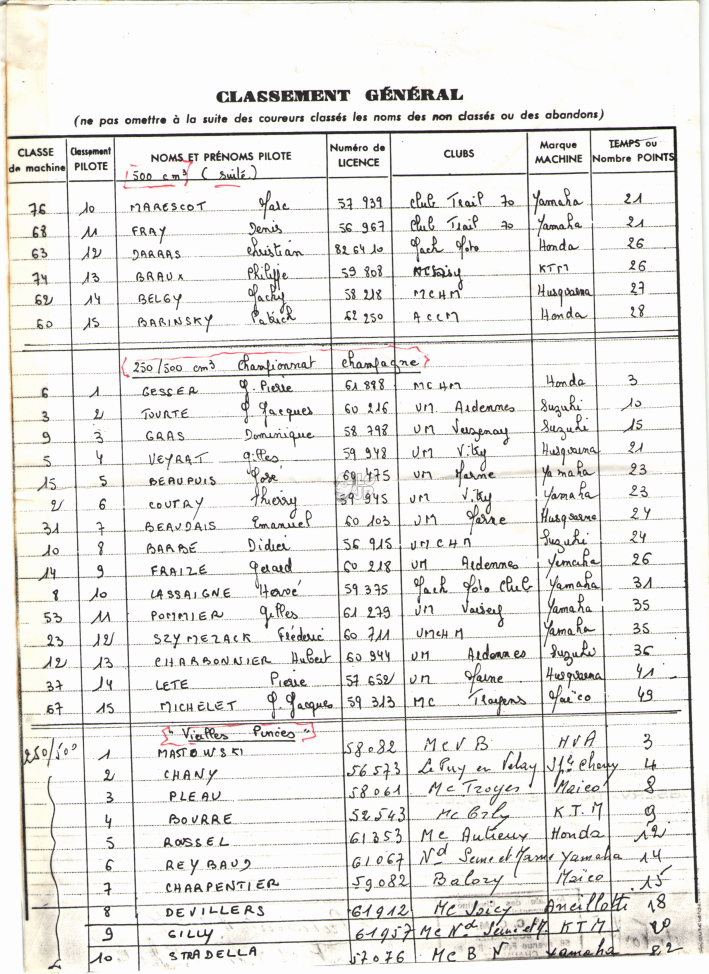 CLASSEMENT GÉNÉRAL
(ne pas omettre à la suite des coureurs classés les noms des non classés ou des abandons)
CLASSE de machine Classement PILOTE NOMS ET PRÉNOMS PILOTE Numéro de LICENCE CLUBS Marque MACHINE TEMPS ou Nombre POINTS
500 cm³ (suite)
76 10 MARESCOT Marc 57 939 Club Trail 70 Yamaha 21
68 11 FRAY Denis 56 967 Club Trail 70 Yamaha 21
63 12 DARRAS Christian 82 64 10 Mach Moto Honda 26
74 13 BRAUX Philippe 59 808 KTM 26
62 14 BELGY Jacky 58 218 MCHM Husqvarna 27
60 15 BARINSKY Patrick 62 250 ACCM Honda 28
250/500 cm³ Championnat Champagne
6 1 GESSER J. Pierre 61 898 MCHM Honda 3
3 2 TOURTE J. Jacques 60 216 UM Ardennes Suzuki 10
9 3 GRAS Dominique 58 798 UM Verzenay Suzuki 15
5 4 VEYRAT Gilles 59 948 UM Vitry Husqvarna 21
15 5 BEAUPUIS José 60 475 UM Marne Yamaha 23
2 6 COUTRY Thierry 59 945 UM Vitry Yamaha 23
31 7 BEAUDAIS Emanuel 60 103 UM Marne Husqvarna 24
10 8 BARBE Didier 56 915 UMCHM Suzuki 24
14 9 FRAIZE Gerard 60 218 UM Ardennes Yamaha 26
8 10 LASSAIGNE Hervé 59 375 Mach Moto Club Yamaha 31
53 11 POMMIER Gilles 61 279 UM Yamaha 35
23 12 SZYMEZACK Fréderic 60 711 UMCHM Yamaha 35
12 13 CHARBONNIER Hubert 60 944 UM Ardennes Suzuki 36
37 14 LETE Pierre 57 652 UM Marne Husqvarna 41
67 15 MICHELET J. Jacques 59 313 MC Troyens Maïco 49
"Vieilles Punces"
250/500 1 MASTOWSKI 58082 MCVB HVA 3
2 CHANY 56573 Le Puy en Velay Chany 4
3 PLEAU 58061 Mc Troyes Maico 8
4 BOURRE 52543 Mc Orly K.T.M 9
5 ROSSEL 61353 Mc Autieux Honda 12
6 REYBAUD 61067 Nd Seine et Marne Yamaha 14
7 CHARPENTIER 59082 Balory Maico 15
8 DEVILLERS 61912 Mc Joicy Ancillotti 18
9 GILLY 61957 Mc Nd Seine et M. KTM 20
10 STRADELLA 57076 Mc B N Yamaha 22